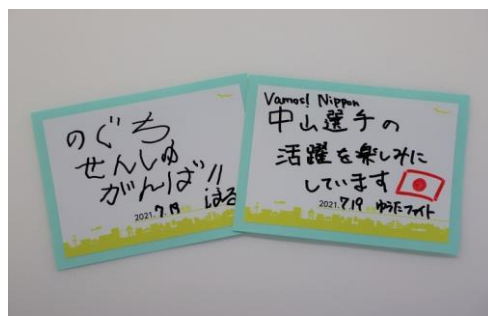 のぐち
せんしゅ
がんば!!
はる
2021.7.19
Vamos! Nippon
中山選手の
活躍を楽しみに
しています
2021.7.19 ゆうたファイト